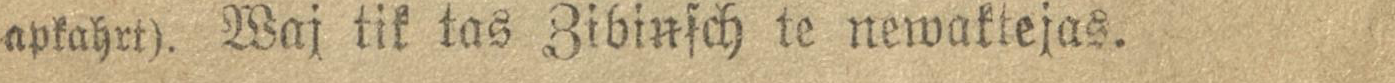 apkahrt). Waj tik tas Zibiꞥſch te newaktejas.